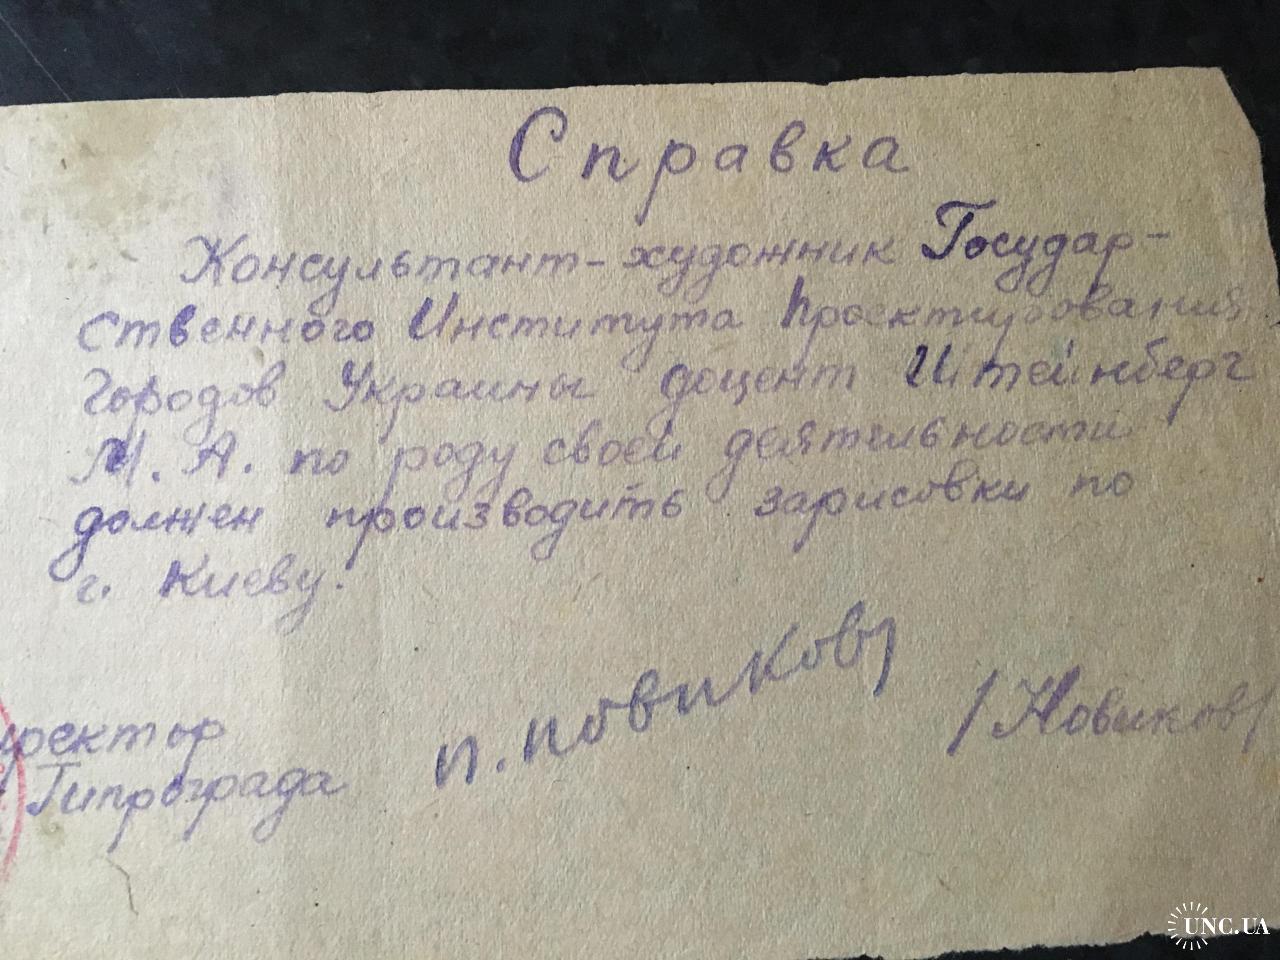 Справка
Консультант-художник Государ-
ственного Института Проектирования
Городов Украины доцент Штейнберг
М. А. по роду своей деятельности
должен производить зарисовки по
г. Киеву.
иректор
Гипрограда
п. новиков
/Новиков/
UNC.UA